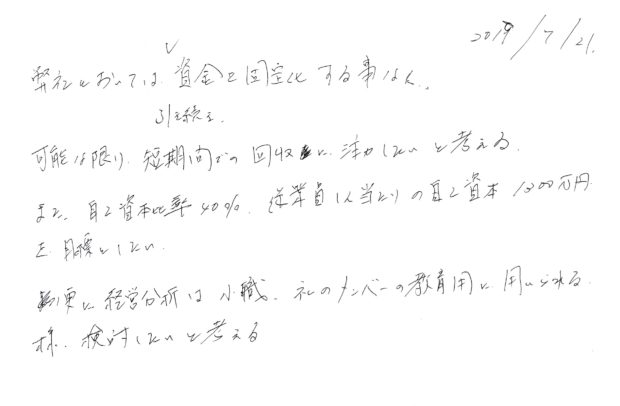 2019/7/21.
弊社においては、資金を固定化する事なく、
引き続き、
可能な限り、短期間での回収に注力したいと考える。
また、自己資本比率40%、従業員1人当たりの自己資本1000万円
を目標としたい。
更に経営分析は小職、社のメンバーの教育用に用いられる
様、検討したいと考える